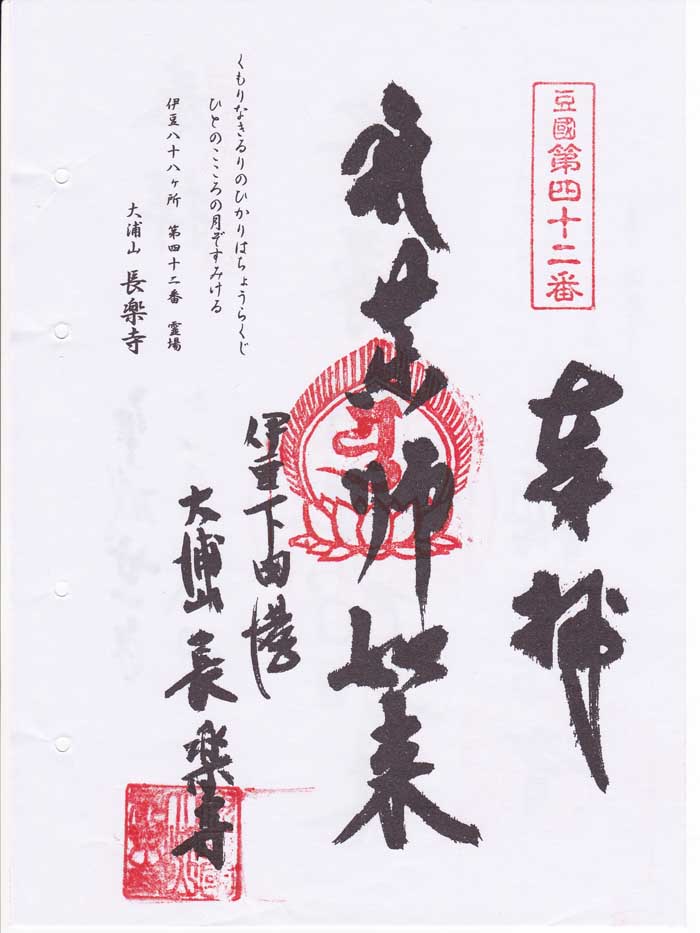 豆國第四十二番
奉拝
薬師如来
伊豆下田港
大浦山 長楽寺
くもりなきるりのひかりはちょうらくじ
ひとのこころの月ぞすみける
伊豆八十八ヶ所 第四十二番 霊場
大浦山 長楽寺